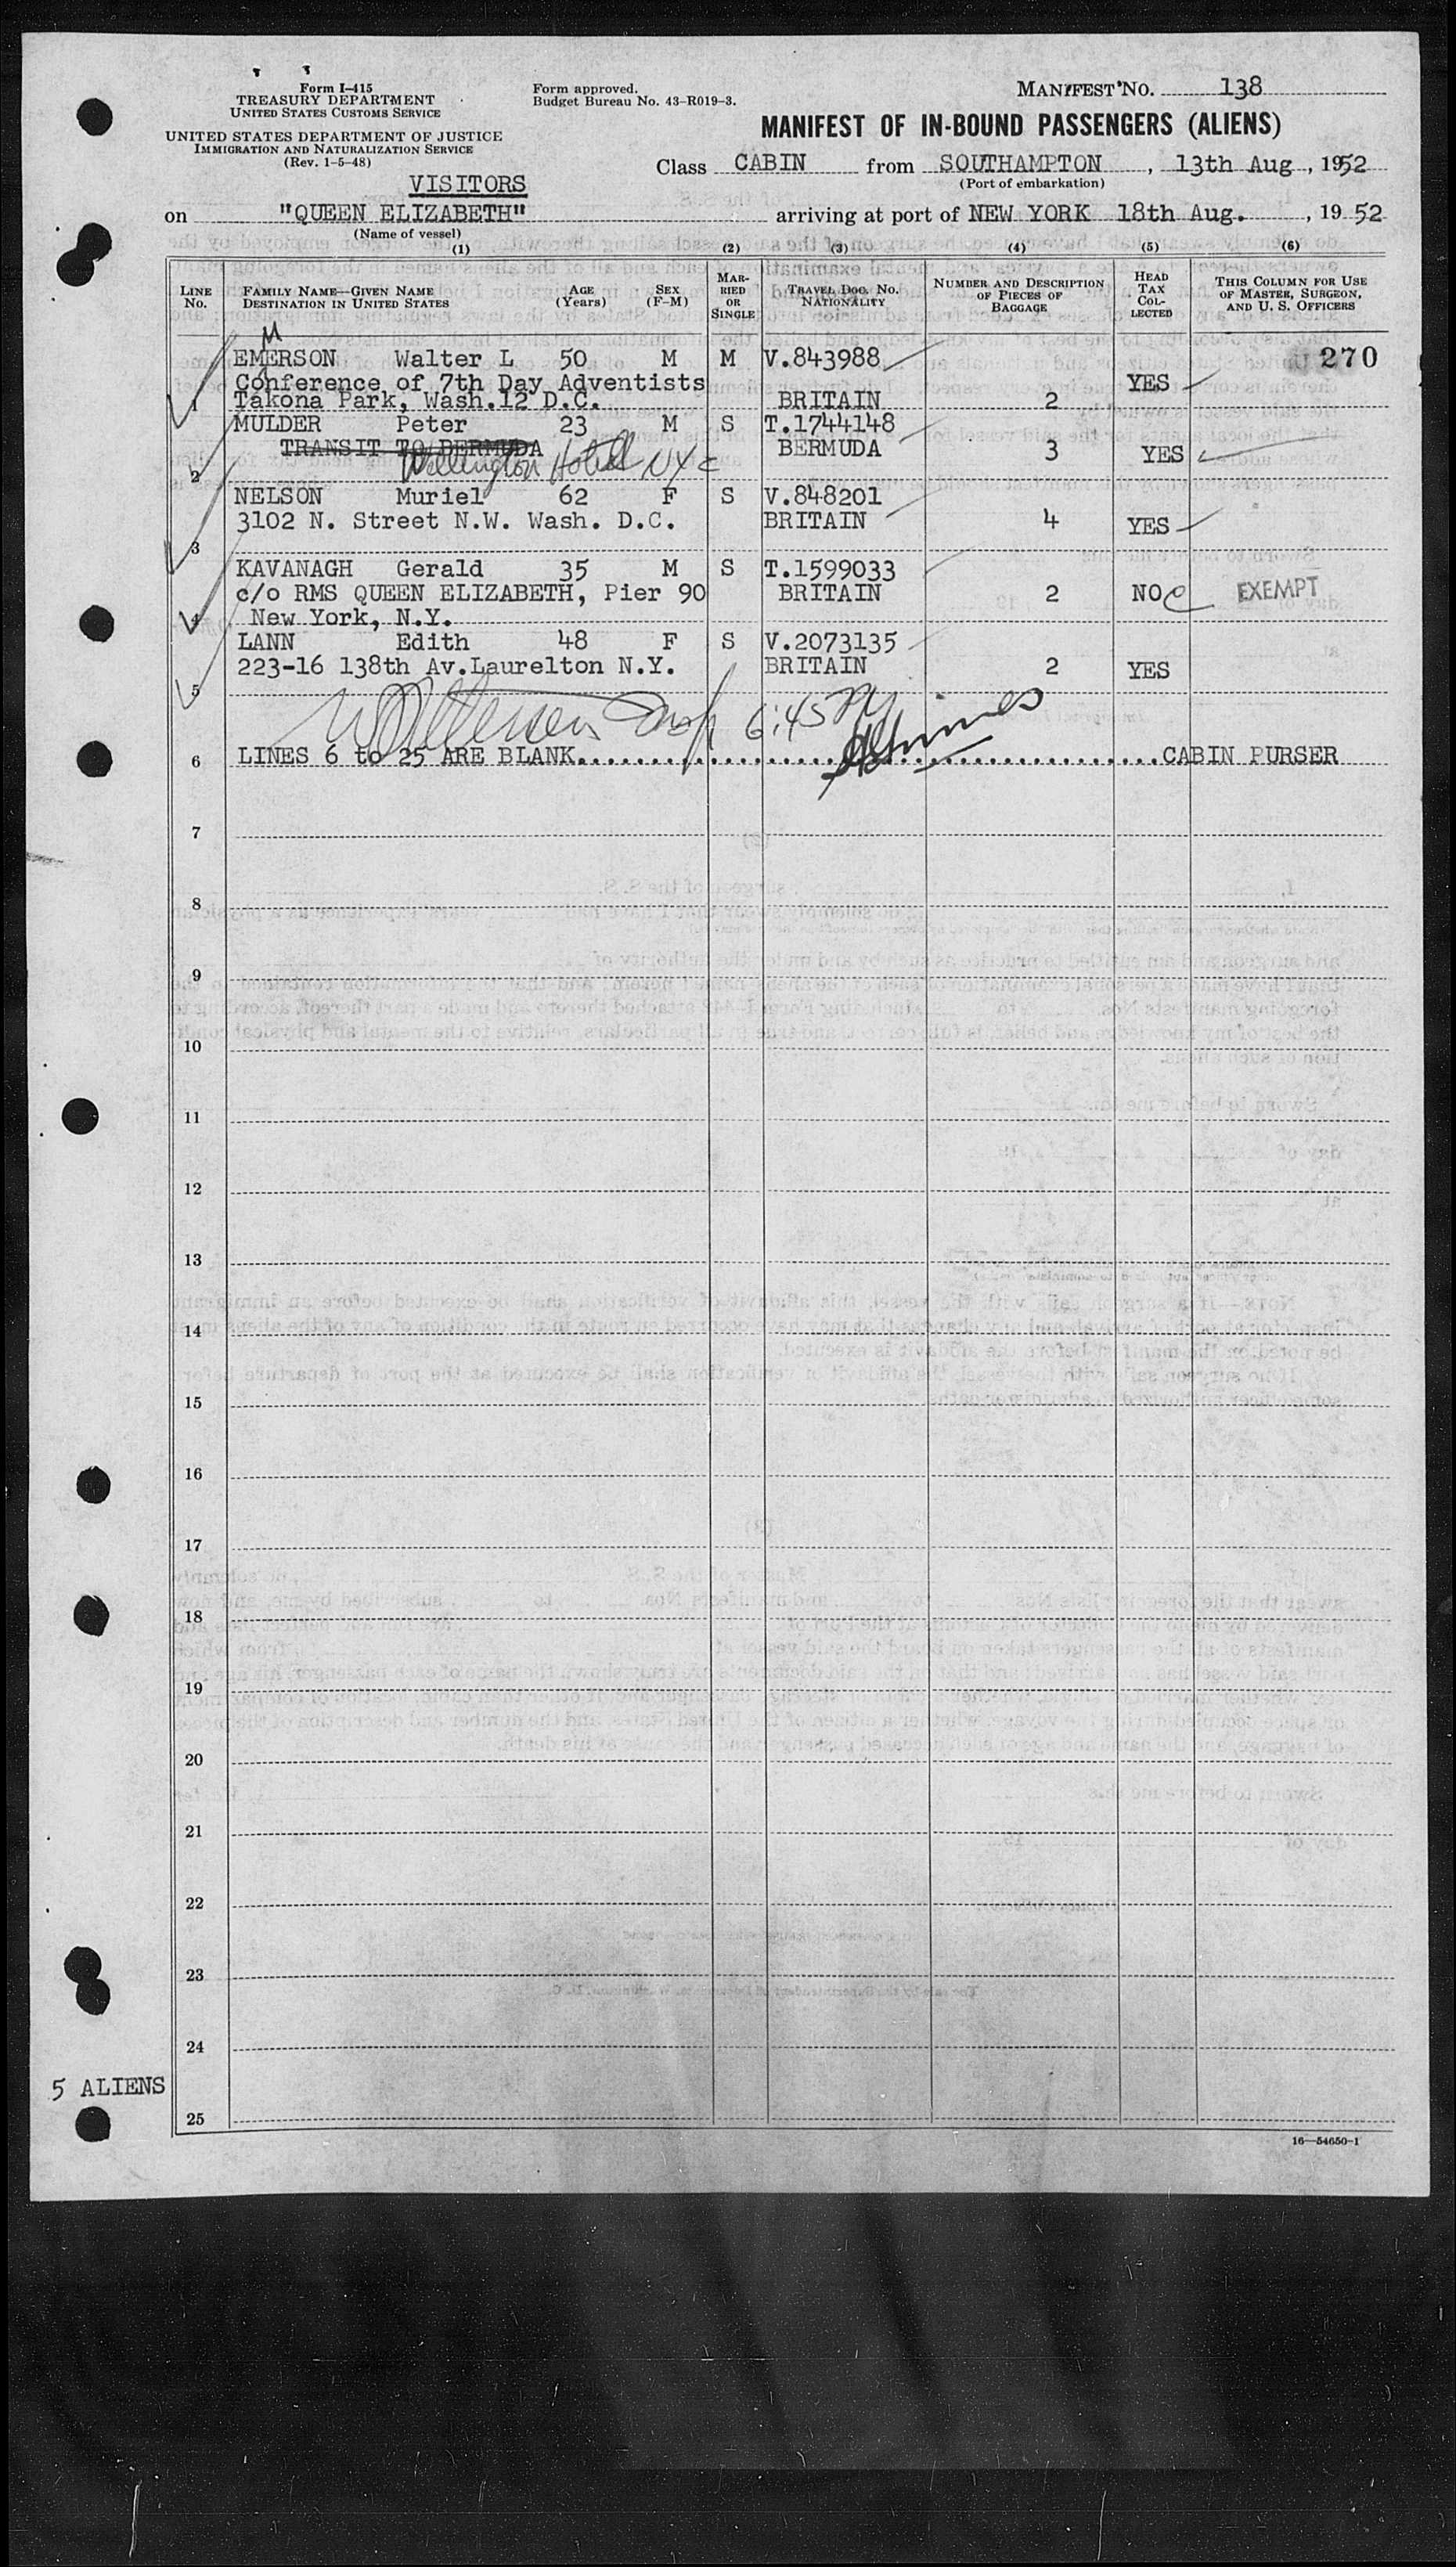 Form I-415
TREASURY DEPARTMENT
UNITED STATES CUSTOMS SERVICE
UNITED STATES DEPARTMENT OF JUSTICE
IMMIGRATION AND NATURALIZATION SERVICE
(Rev. 1-5-48)
Form approved.
Budget Bureau No. 43-R019-3.
MANIFEST NO. 138
MANIFEST OF IN-BOUND PASSENGERS (ALIENS)
Class CABIN from SOUTHAMPTON, 13th Aug, 1952
(Port of embarkation)
VISITORS
on "QUEEN ELIZABETH" arriving at port of NEW YORK 18th Aug., 1952
(Name of vessel)
(1) (2) (3) (4) (5) (6)
LINE No. FAMILY NAME—GIVEN NAME DESTINATION IN UNITED STATES AGE (Years) SEX (F-M) MARRIED OR SINGLE TRAVEL DOC. NO. NATIONALITY NUMBER AND DESCRIPTION OF PIECES OF BAGGAGE HEAD TAX COLLECTED THIS COLUMN FOR USE OF MASTER, SURGEON, AND U. S. OFFICERS
M
EMERSON Walter L 50 M M V.843988 270
Conference of 7th Day Adventists YES
1 Takona Park, Wash.12 D.C. BRITAIN 2
MULDER Peter 23 M S T.1744148
TRANSIT TO BERMUDA BERMUDA 3 YES
2 Wellington Hotel NYC
NELSON Muriel 62 F S V.848201
3102 N. Street N.W. Wash. D.C. BRITAIN 4 YES
3
KAVANAGH Gerald 35 M S T.1599033
c/o RMS QUEEN ELIZABETH, Pier 90 BRITAIN 2 NO EXEMPT
4 New York, N.Y.
LANN Edith 48 F S V.2073135
223-16 138th Av.Laurelton N.Y. BRITAIN 2 YES
5
6:45 PM
6 LINES 6 to 25 ARE BLANK. CABIN PURSER
7
8
9
10
11
12
13
14
15
16
17
18
19
20
21
22
23
24
5 ALIENS
25
16—54650-1